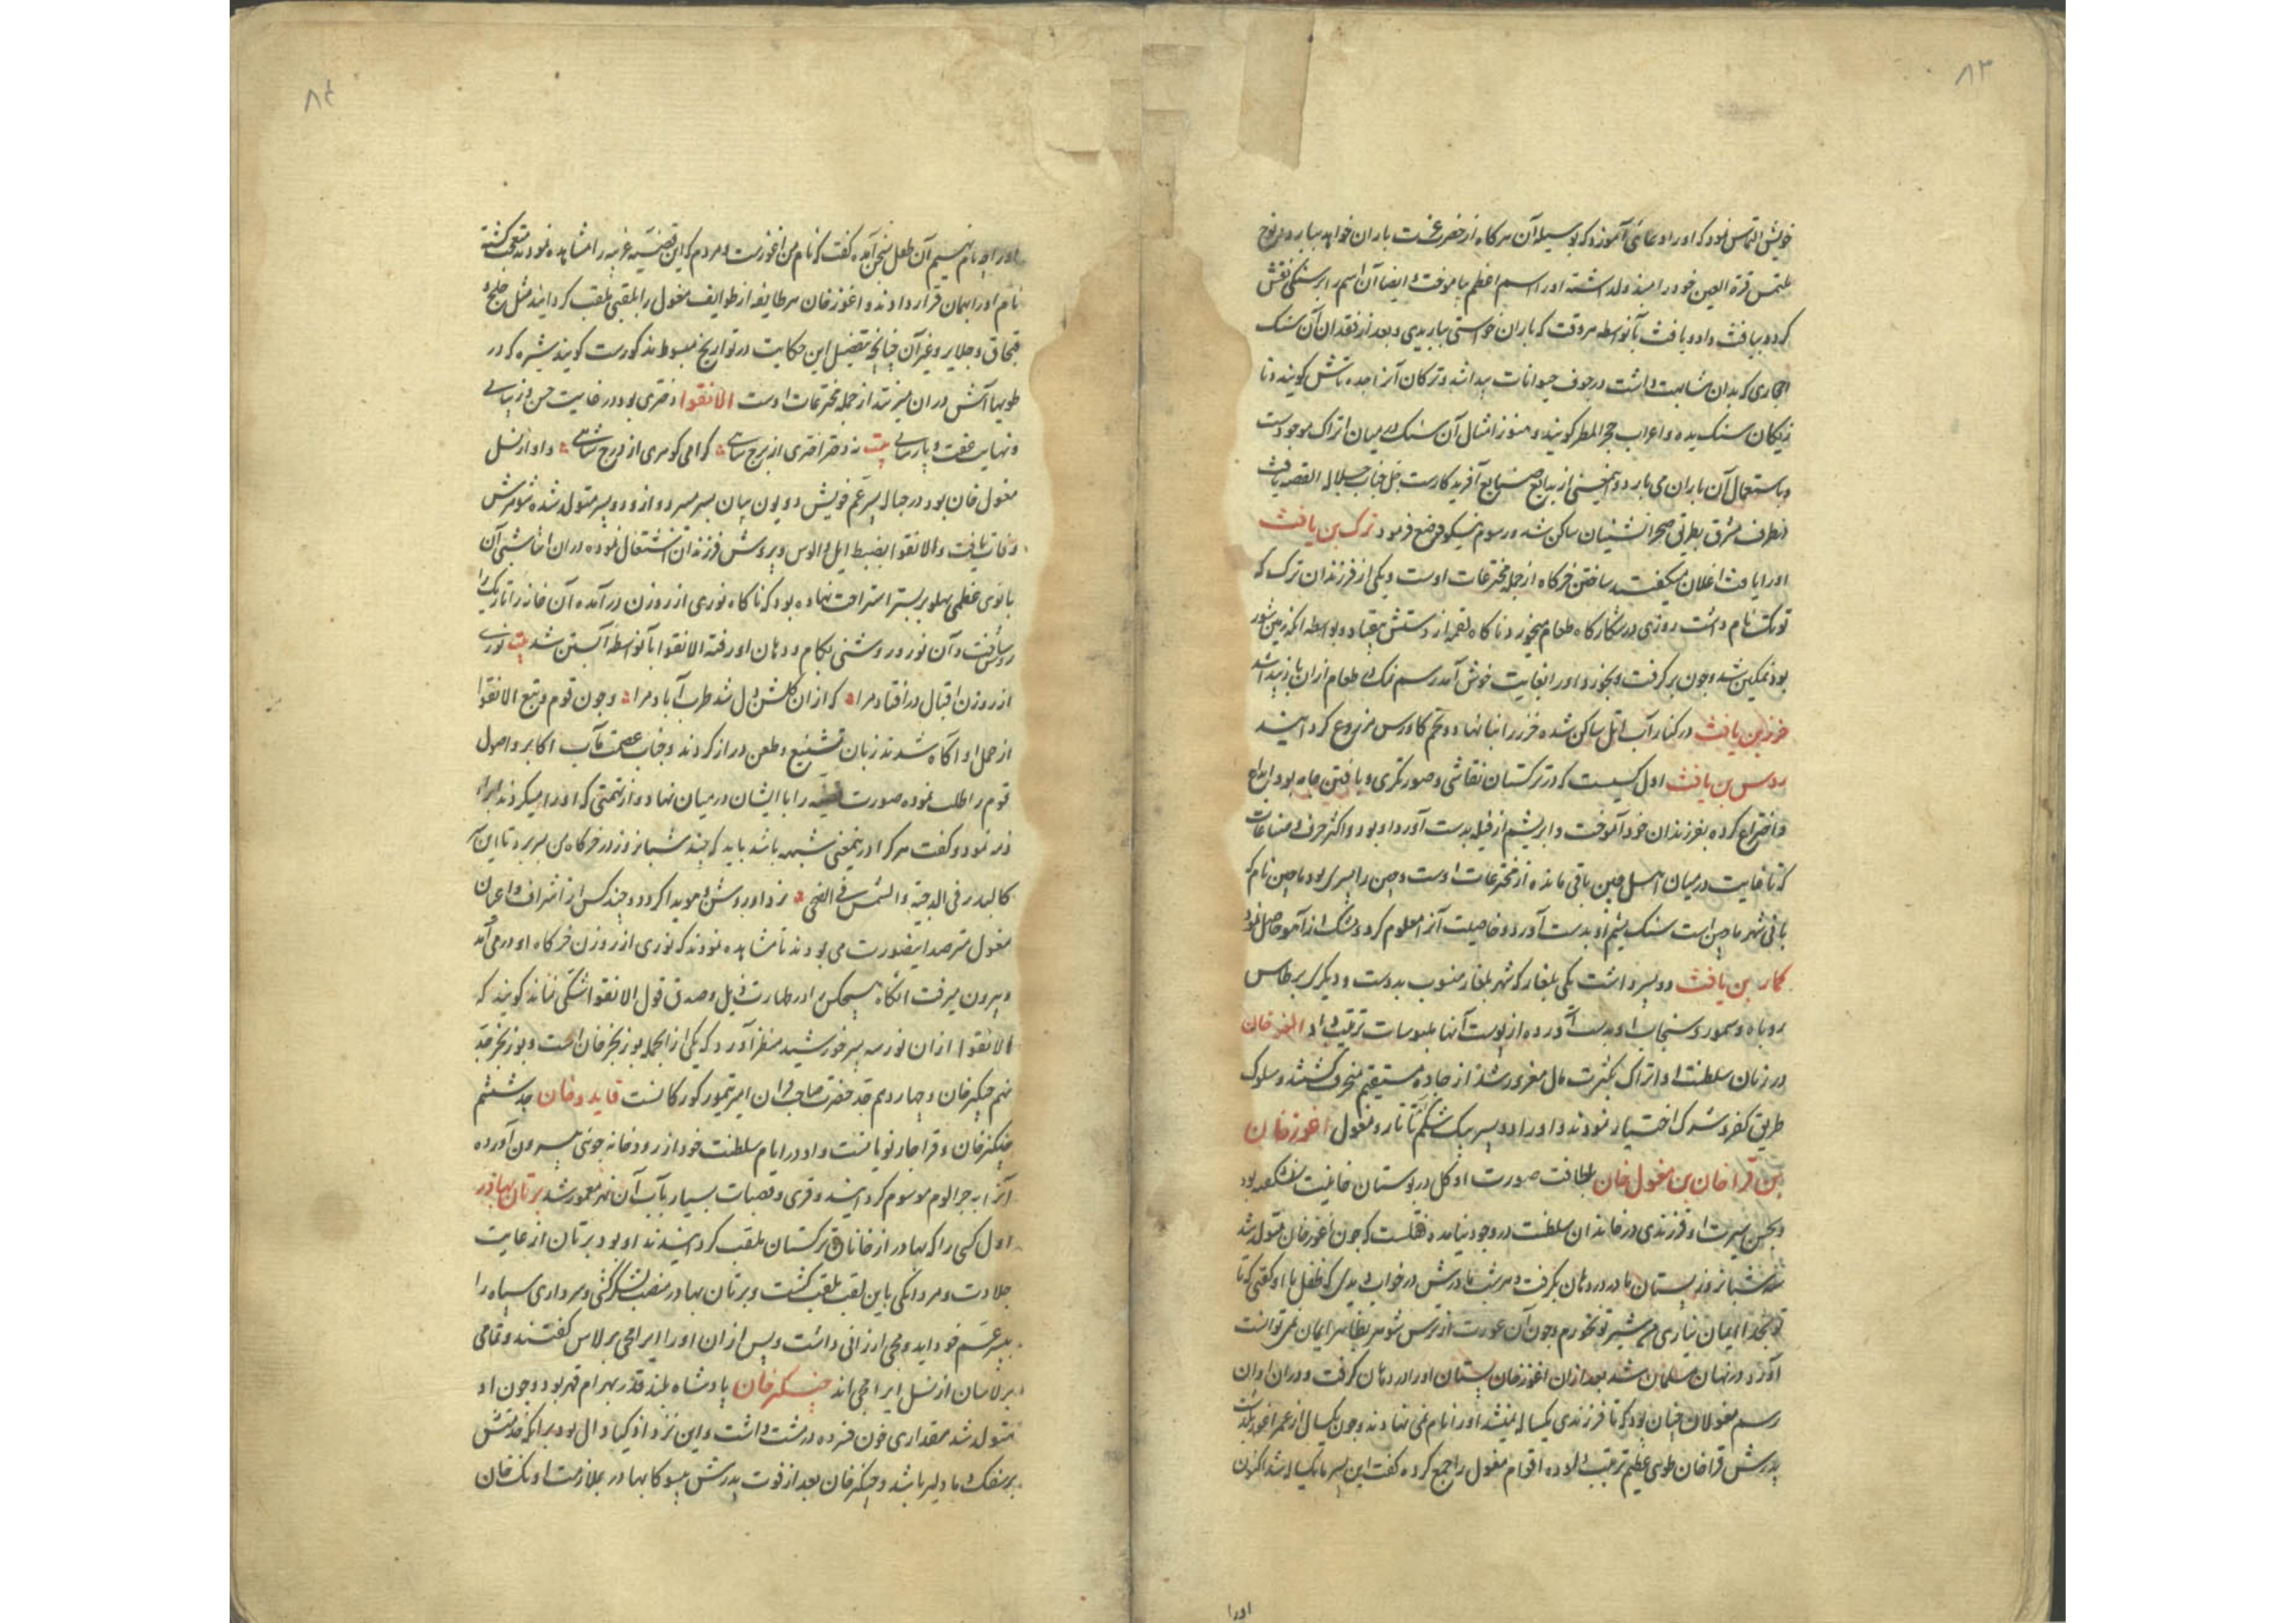 ۸۳
خویش التماس نمود که او را دعائی آموزد که بوسیله آن هر کاه از حضرت عزت باران خواهد ببارد نوح
ملتمس قرة العین خود را مبذول داشته او را اسم اعظم بیاموخت و ایضا آن اسم را بر سنکی نقش
کرده بیافث داد و یافث بآنواسطه هر وقت که باران خواستی بباریدی و بعد از فقدان آن سنک
احجاری که بدان مشابهت داشت در جوف حیوانات پیدا شد و ترکان آنرا جده تاش کویند و تا
زیکان سنک یده و اعراب حجر المطر کویند و هنوز امثال آن سنک در میان اتراک موجودست
و باستعمال آن باران می بارد و اینمعنی از بدایع صنایع آفریدکارست جل جناب جلاله القصه یافث
بطرف مشرق بطریق صحرانشینان ساکن شد و رسوم نیکو وضع فرمود ترک بن یافث
او را یافث اغلان میکفتند ساختن خرکاه از جمله مخترعات اوست و یکی از فرزندان ترک که
تونک نام داشت روزی در شکارکاه طعام میخورد ناکاه لقمه از دستش بیفتاد و بواسطه آنکه زمین شور
بود نمکین شد و چون برکرفت و بخورد او را بغایت خوش آمد رسم نمک در طعام ازان باز پیدا شد
خزر بن یافث در کنار آب اتل ساکن شده خزر را بنا نهاد و تخم کاورس مزروع کردانید
روس بن یافث اول کسیست که در ترکستان نقاشی و صورتکری و بافتن جامه بود ابداع
و اختراع کرده بفرزندان خود آموخت و ابریشم از فیله بدست آورد او بود و اکثر حرف و صناعات
که تا غایت در میان اهل چین باقی مانده از مخترعات اوست و چین را پسری بود ماچین نام که
بانی شهر ماچین است سنک یشم او بدست آورد و خاصیت آنرا معلوم کرد و مشک از آهو حاصل نمود
کمار بن یافث دو پسر داشت یکی بلغار که شهر بلغار منسوب بدوست و دیکری برطاس
روباه و سمور و سنجاب او بدست آورده از پوست آنها ملبوسات ترتیب داد النجه خان
در زمان سلطنت او اتراک بکثرت مال مغرور شده از جاده مستقیم منحرف کشتند و سلوک
طریق کفر و شرک اختیار نمودند و او را دو پسر بیک شکم تاتار و مغول اغوز خان
بن قرا خان بن مغول خان بلطافت صورت او کل در بوستان خانیت نشکفته بود
و بحسن سیرت او فرزندی در خاندان سلطنت در وجود نیامده نقلست که چون اغوز خان متولد شد
سه شبانروز پستان مادر در دهان نکرفت و هر شب مادرش در خواب دیدی که طفل با او کفتی که تا
تو بخدا ایمان نیاری من شیر تو نخورم و چون آن عورت از ترس شوهر بظاهر ایمان نمی توانست
آورد در نهان مسلمان شد بعد ازان اغوز خان پستان او را در دهان کرفت و دران اوان
رسم مغولان چنان بود که تا فرزندی یکساله نمیشد او را نام نمی نهادند و چون یکسال از عمر اغوز بکذشت
پدرش قراخان طوی عظیم ترتیب نموده اقوام مغول را جمع کرده کفت این پسر ما یکساله شد اکنون
اورا
۸۴
او را چه نام نهیم آن طفل بسخن آمده کفت که نام من اغوزست مردم که این قضیه غریبه را مشاهده نمودند متعجب کشته
نام او را همان قرار دادند و اغوز خان هر طایفه از طوایف مغول را بلقبی ملقب کردانید مثل خلج و
قبچاق و جلایر و غیر آن چنانچه تفضیل این حکایت در تواریخ مبسوط مذکورست کویند شیره که در
طویها آش دران میریزند از جمله مخترعات اوست الانقوا دختری بود در غایت حسن و زیبائی
و نهایت عفت و پارسائی بیت نه دختر اختری از برج شاهی کرامی کوهری از درج شاهی و او از نسل
مغول خان بود در حباله پسر عم خویش دویون بیان بسر میبرد و ازو دو پسر متولد شده شوهرش
وفات یافت و الانقوا بضبط ایل و الوس و پرورش فرزندان اشتغال نموده دران اثنا شبی آن
بانوی عظمی پهلو بر بستر استراحت نهاده بود که ناکاه نوری از روزن در آمده آن خانه تاریک را
روشن ساخت و آن نور در روشنی بکام و دهان او رفته الانقوا بآنواسطه آبستن شد بیت نوری
از روزن اقبال در افتاد مرا که ازان کلشن دل شد طرب آباد مرا و چون قوم و تبع الانقوا
از حمل او آکاه شدند زبان تشنیع و طعن دراز کردند و جناب عصمت مآب اکابر و اصول
قوم را طلب نموده صورت قضیه را با ایشان در میان نهاد و از تهمتی که او را میکردند ابراء
ذمه نمود و کفت هر کرا درینمعنی شبهه باشد باید که چند شبانروز در خرکاه من بسر برد تا این سر
کالبدر فی الدجیة و الشمس فی الضحی نزد او روشن و هویدا کردد و چند کس از اشراف و اعیان
مغول مترصد اینصورت می بودند تا مشاهده نمودند که نوری از روزن خرکاه او در می آمد
و بیرون میرفت آنکاه هیچکس را در طهارت ذیل و صدق قول الانقوا شکی نماند کویند که
الانقوا ازان نور سه پسر خورشید منظر آورد که یکی از انجمله بوزنجر خان است و بوزنجر جد
نهم چنکیز خان و چهاردهم جد حضرت صاحب قران امیر تیمور کورکانست قایدو خان جد ششم
چنکیز خان و قراجار نویانست و او در ایام سلطنت خود از رودخانه جوئی بیرون آورده
آنرا به جرالوم موسوم کردانید و قری و قصبات بسیار بآب آن نهر معمور شد برتان بهادر
اول کسی را که بهادر از خانان ترکستان ملقب کردانیدند او بود برتان از غایت
جلادت و مردانکی باین لقب ملقب کشت و برتان بهادر منصب لشکرکشی و سرداری سپاه را
بپسر عم خود ایردمجی ارزانی داشت و پس ازان او را ایردمجی برلاس کفتند و تمامی
برلاسان از نسل ایردمجی اند چنکیز خان پادشاه بلند قدر بهرام قهر بود و چون او
متولد شد مقداری خون فسرده در مشت داشت و این نزد اذکیا دال بود برانکه خدمتش
بر سفک دما دلیر باشد و چنکیز خان بعد از فوت پدرش ییسوکا بهادر بملازمت اونک خان